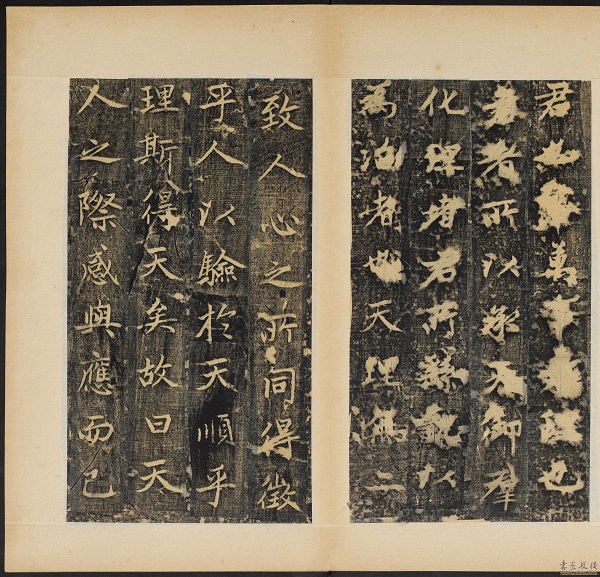 君萬也
者所以承天御羣
化君所以
為治者天理二
致人心之所同得徵
乎人以驗於天順乎
理斯得天矣故曰天
人之際感與應而已